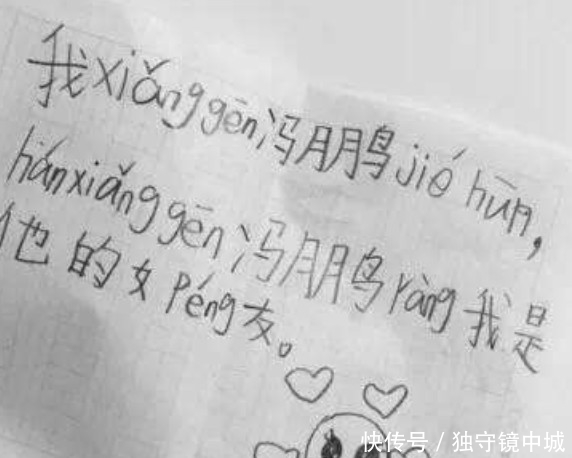 我xiǎnggēn冯鹏jiéhūn,
hánxiǎnggēn冯鹏ràng我是
他的女péng友。
快传号/独守镜中城